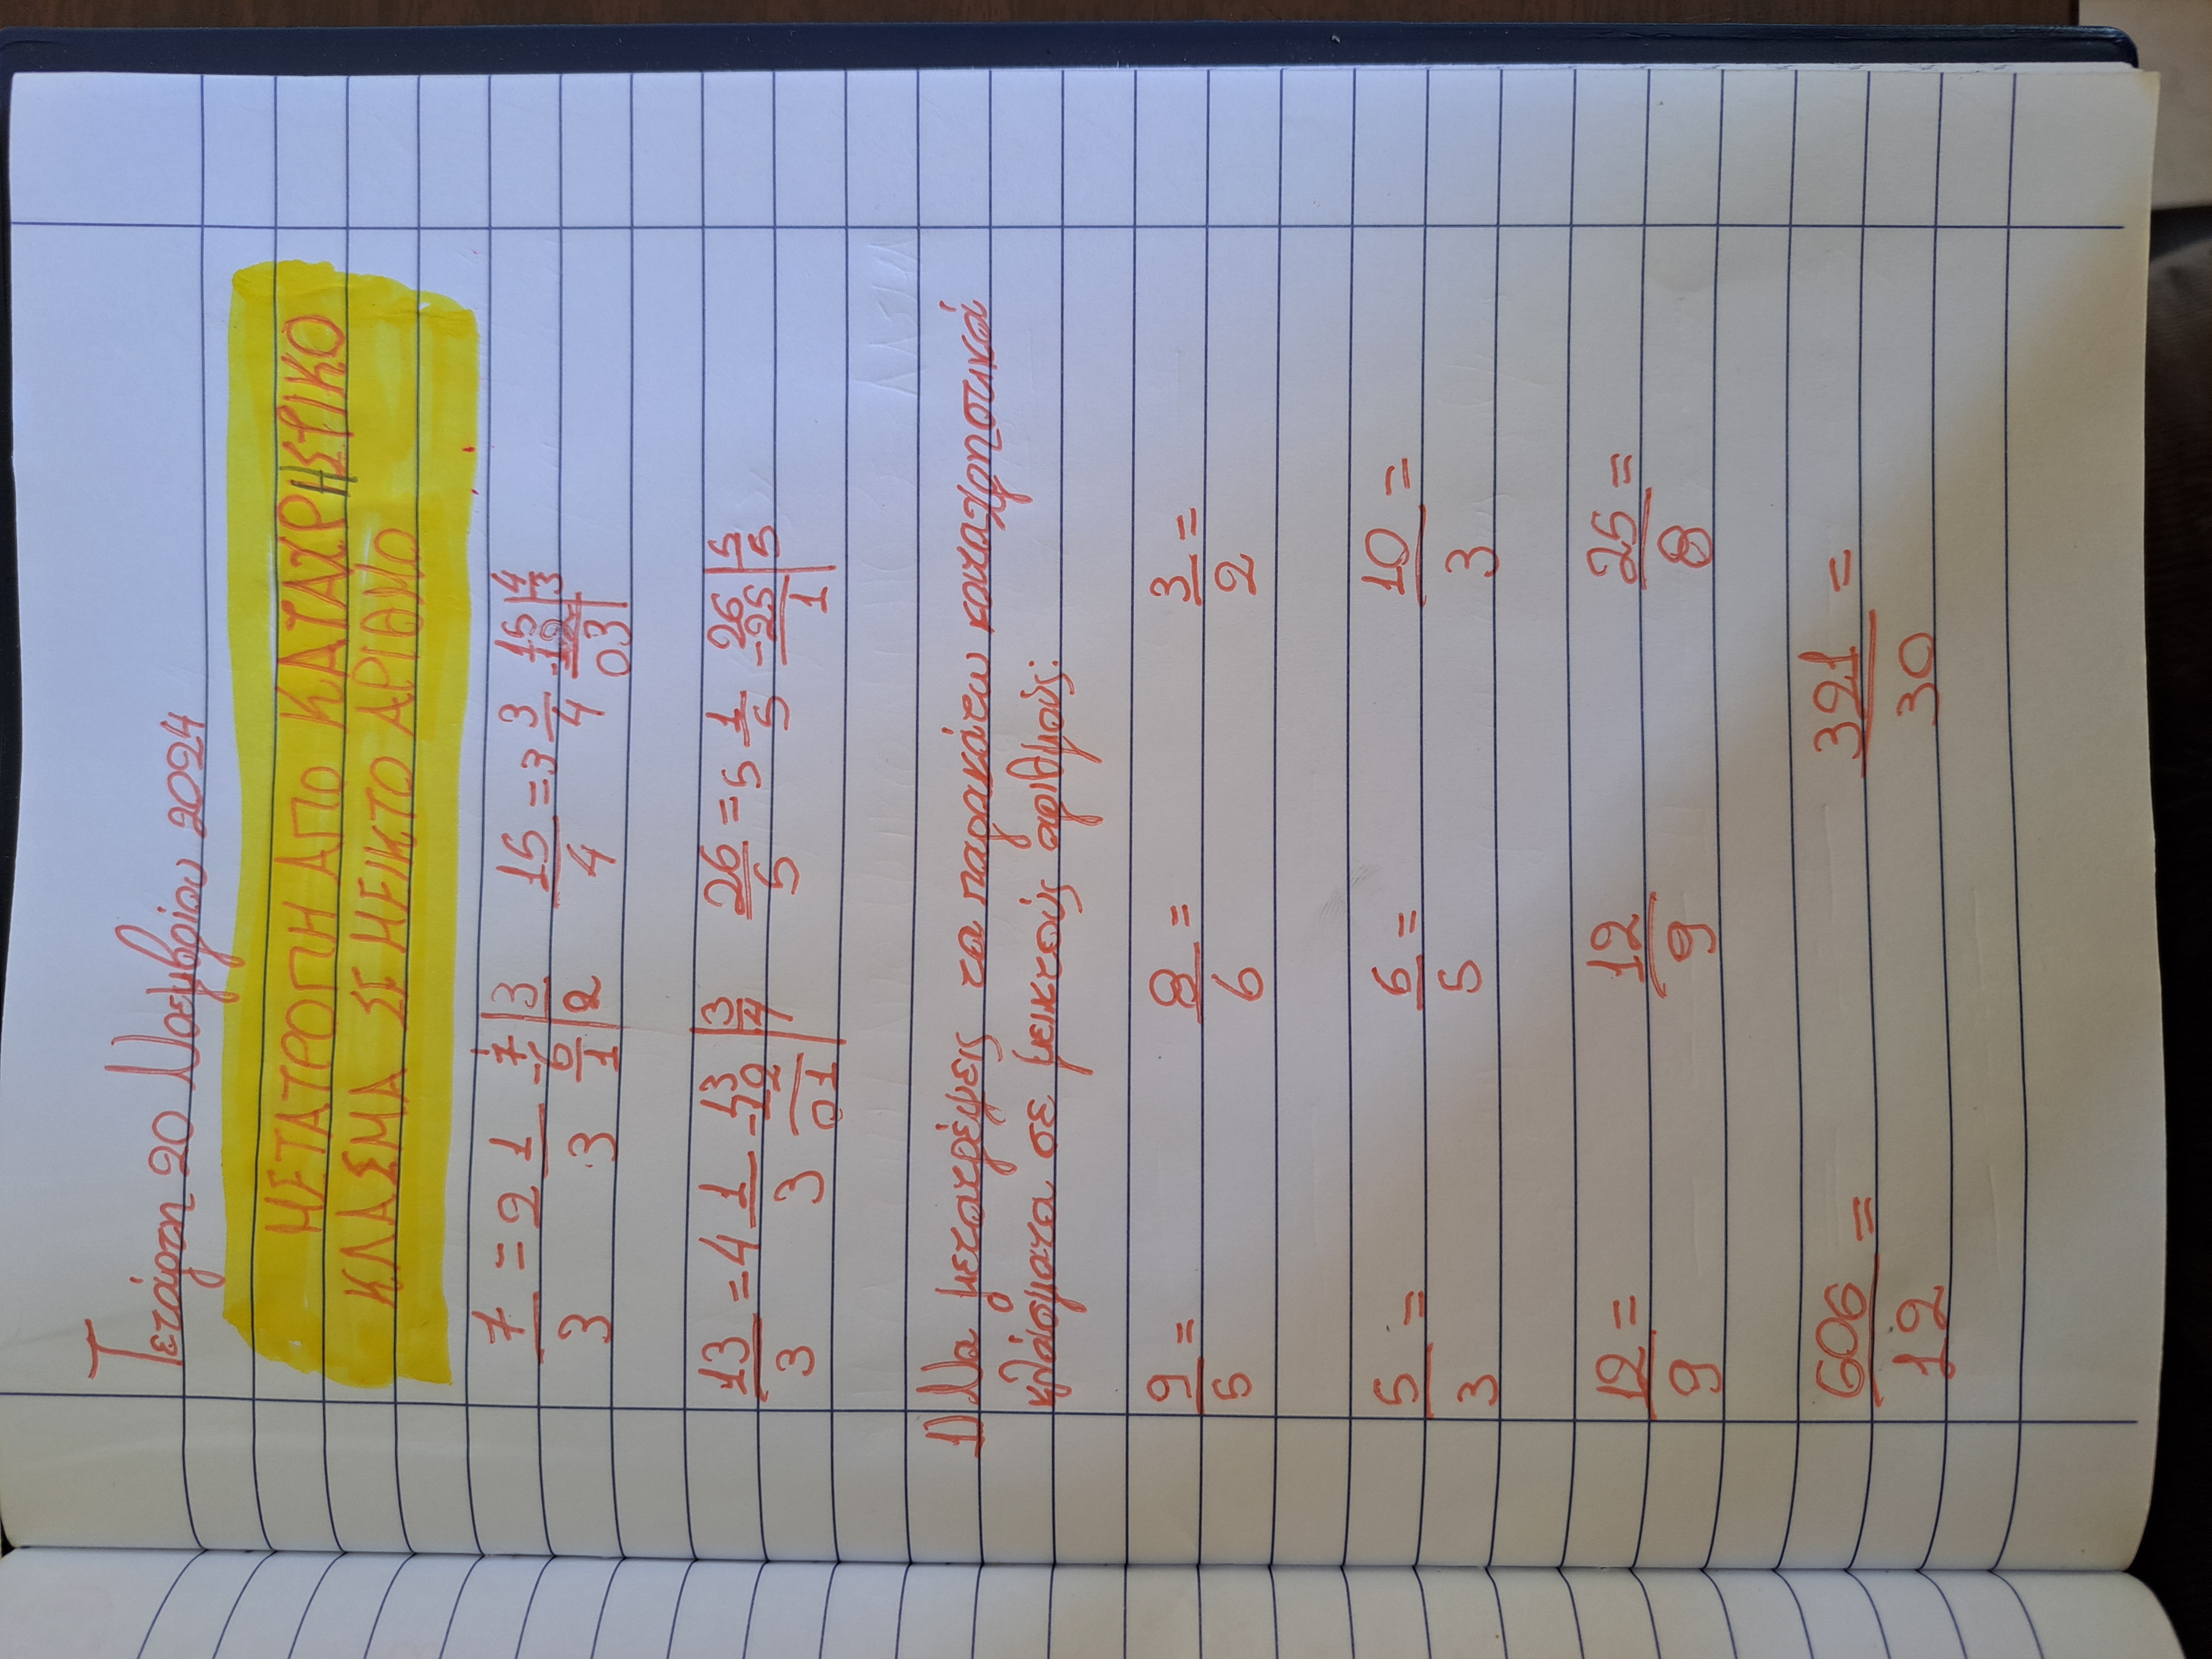 Τετάρτη 20 Νοεμβρίου 2024
ΜΕΤΑΤΡΟΠΗ ΑΠΟ ΚΑΤΑΧΡΗΣΤΙΚΟ
ΚΛΑΣΜΑ ΣΕ ΜΕΙΚΤΟ ΑΡΙΘΜΟ
7/3 = 2 1/3 7 | 3 -6 | 2 1 15/4 = 3 3/4 15 | 4 -12 | 3 03
13/3 = 4 1/3 13 | 3 -12 | 4 01 26/5 = 5 1/5 26 | 5 -25 | 5 1
1) Να μετατρέψεις τα παρακάτω καταχρηστικά
κλάσματα σε μεικτούς αριθμούς:
9/5 = 8/6 = 3/2 =
5/3 = 6/5 = 10/3 =
12/9 = 12/9 25/8 =
606/12 = 321/30 =